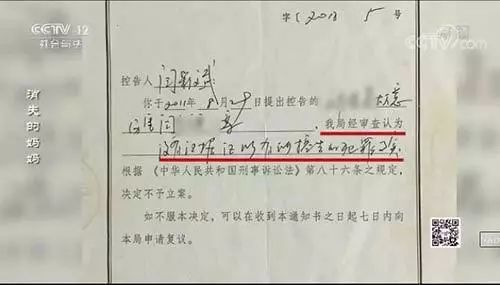 CCTV 12
社会与法
CCTV.com
字〔2013 5 号
消失的妈妈
控告人 闫
你于2011年8月29日提出控告的 故意
闫 案，我局经审查认为
没有证据证明有 控告的犯罪事实
根据《中华人民共和国刑事诉讼法》第八十六条之规定，
决定不予立案。
如不服本决定，可以在收到本通知书之日起七日内向
本局申请复议。